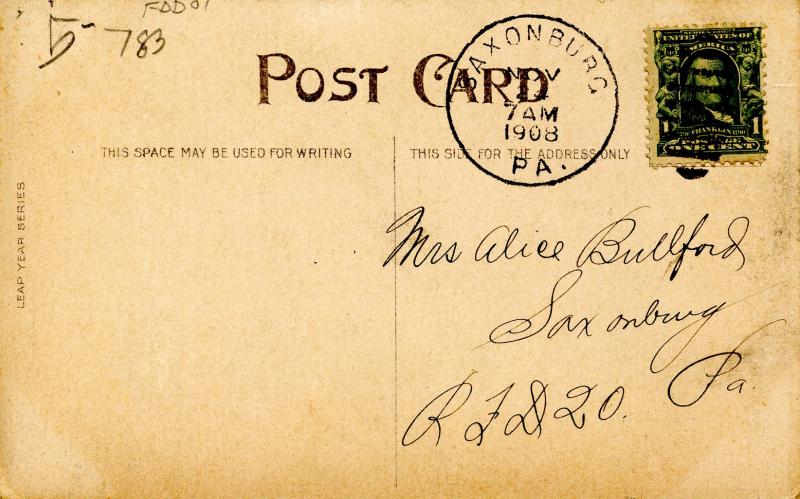 FDD01
5- 783
POST CARD
SAXONBURG
NOV
24
7AM
1908
PA.
SERIES 1902
UNITED STATES OF
AMERICA
1706 FRANKLIN 1790
1 POSTAGE 1
ONE CENT
THIS SPACE MAY BE USED FOR WRITING
THIS SIDE FOR THE ADDRESS ONLY
LEAP YEAR SERIES
Mrs Alice Bullford
Saxonburg
Pa.
R F D 20.